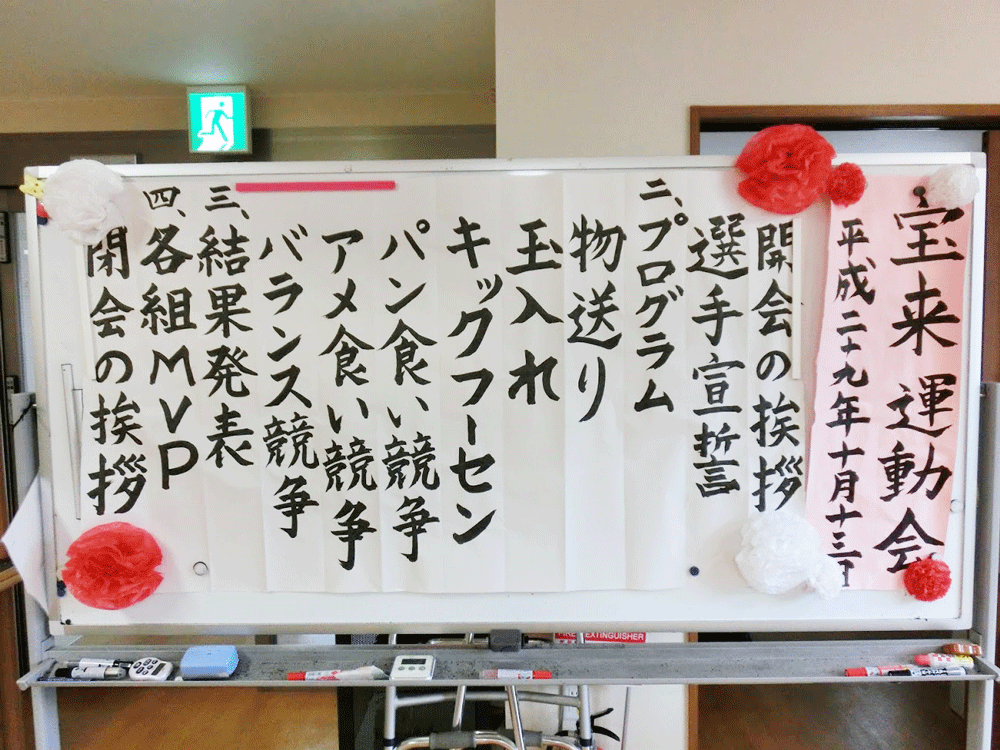 宝来 運動会
平成二十九年十月十三日
開会の挨拶
選手宣誓
二、プログラム
物送り
玉入れ
キックフーセン
パン食い競争
アメ食い競争
バランス競争
三、結果発表
四、各組MVP
閉会の挨拶
FIRE EXTINGUISHER